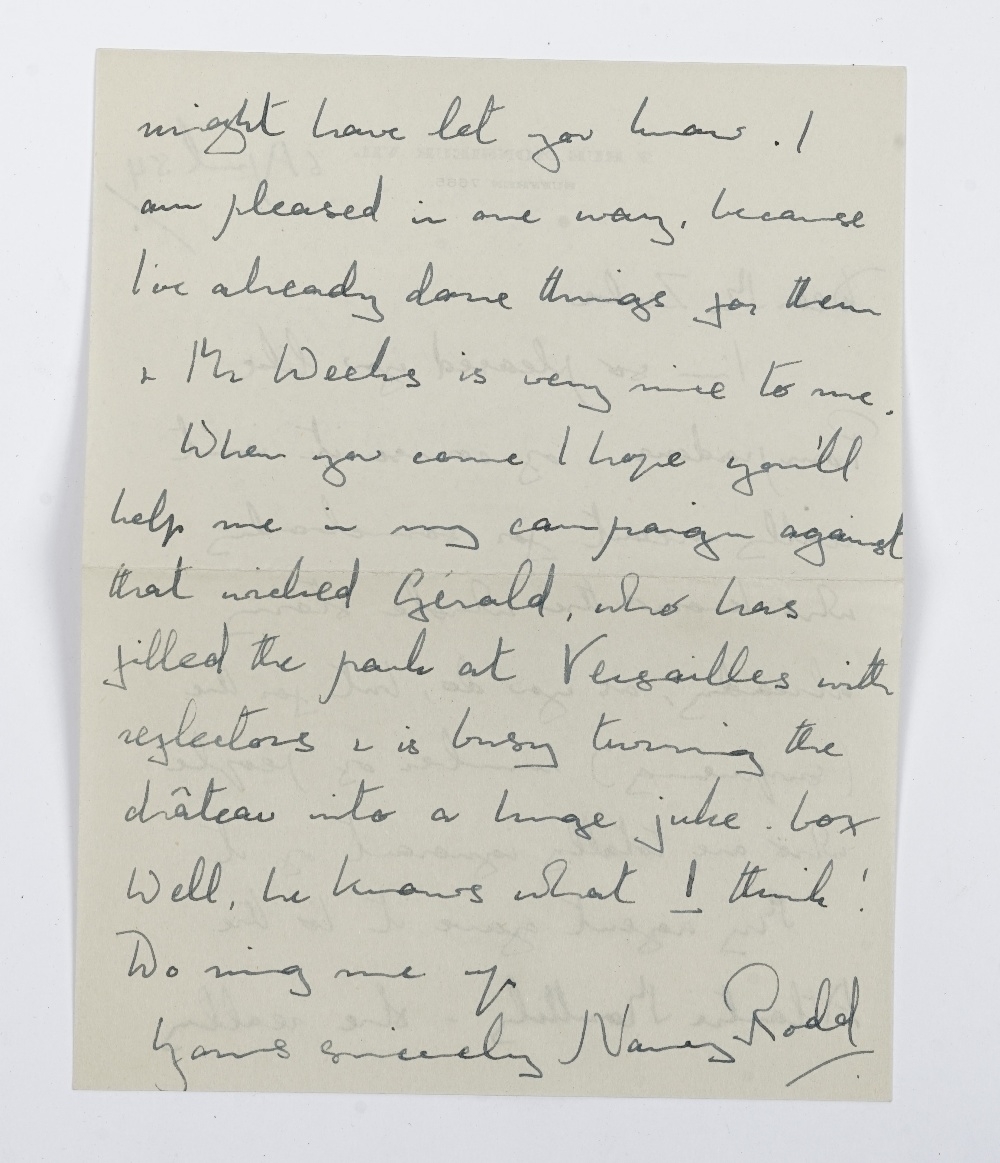 might have let you know. I
am pleased in one way, because
I've already done things for them
& Mr Weeks is very nice to me.
When you come I hope you'll
help me in my campaign against
that wicked Gérald, who has
filled the park at Versailles with
reflectors & is busy turning the
château into a huge juke-box
Well, he knows what I think!
Do ring me up
Yours sincerely Nancy Rodd